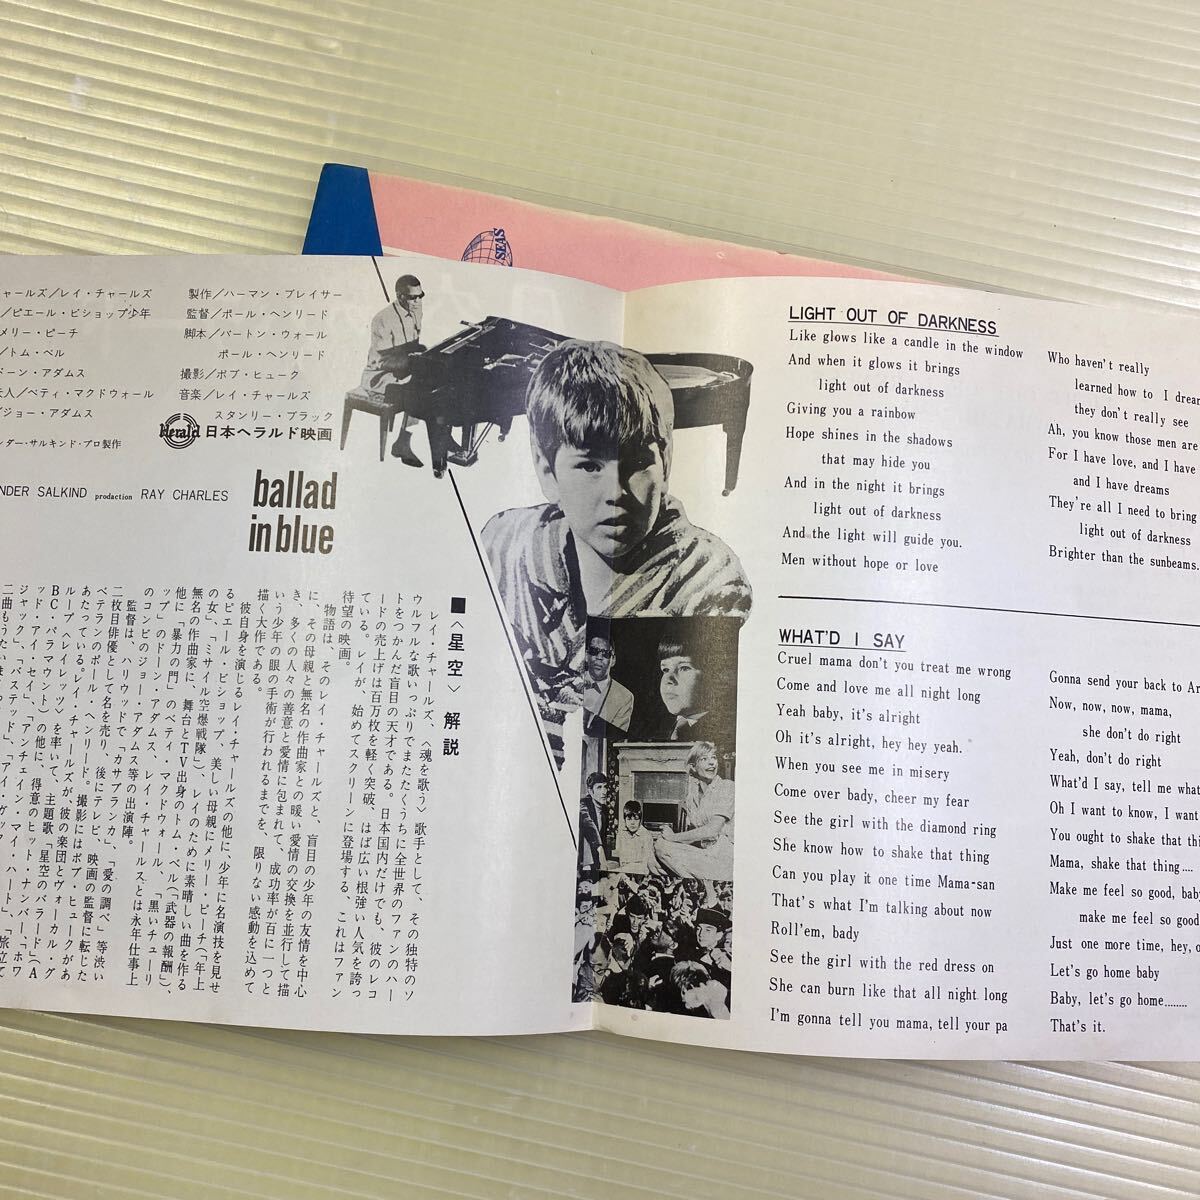 SEAS
チャールズ／レイ・チャールズ
／ピエール・ビショップ少年
メリー・ピーチ
／トム・ベル
ドーン・アダムス
夫人／ベティ・マクドウォール
／ジョー・アダムス
ンダー・サルキンド・プロ製作
製作／ハーマン・ブレイサー
監督／ポール・ヘンリード
脚本／バートン・ウォール
ポール・ヘンリード
撮影／ボブ・ヒューク
音楽／レイ・チャールズ
スタンリー・ブラック
Herald 日本ヘラルド映画
NDER SALKIND prodaction RAY CHARLES
ballad
in blue
■〈星空〉 解説
レイ・チャールズ、〈魂を歌う〉歌手として、その独特のソ
ウルフルな歌いっぷりでまたたくうちに全世界のファンのハー
トをつかんだ盲目の天才である。日本国内だけでも、彼のレコ
ードの売上げは百万枚を軽く突破、はば広い根強い人気を誇っ
ている。レイが、始めてスクリーンに登場する、これはファン
待望の映画。
物語は、そのレイ・チャールズと、盲目の少年の友情を中心
に、その母親と無名の作曲家との暖い愛情の交換を並行して描
き、多くの人々の善意と愛情に包まれて、成功率が百に一つと
いう少年の眼の手術が行われるまでを、限りない感動を込めて
描く大作である。
彼自身を演じるレイ・チャールズの他に、少年に名演技を見せ
るピエール・ビショップ、美しい母親にメリー・ピーチ（「年上
の女」、「ミサイル空爆戦隊」）、レイのために素晴しい曲を作る
無名の作曲家に、舞台とTV出身のトム・ベル（「武器の報酬」）、
他に「暴力の門」のベティ・マクドウォール、「黒いチューリ
ップ」のドーン・アダムス、レイ・チャールズとは永年仕事上
のコンビのジョー・アダムス等の出演陣。
監督は、ハリウッドで「カサブランカ」、「愛の調べ」等渋い
二枚目俳優として名を売り、後にテレビ、映画の監督に転じた
ベテランのポール・ヘンリード。撮影にはボブ・ヒュークがあ
あたっているレイ・チャールズが、彼の楽団とヴォーカル・グ
ループ〈レイレッツ〉を率いて、主題歌「星空のバラード」（A
BC・パラマウント）の他に、得意のヒット・ナンバー、「ホワ
ッド・アイ・セイ」、「アンチェイン・マイ・ハート」、「旅立て
ジャック」、「バステッド」、
LIGHT OUT OF DARKNESS
Like glows like a candle in the window
And when it glows it brings
light out of darkness
Giving you a rainbow
Hope shines in the shadows
that may hide you
And in the night it brings
light out of darkness
And the light will guide you.
Men without hope or love
Who haven't really
learned how to I drea
they don't really see
Ah, you know those men are
For I have love, and I have
and I have dreams
They're all I need to bring
light out of darkness
Brighter than the sunbeams.
WHAT'D I SAY
Cruel mama don't you treat me wrong
Come and love me all night long
Yeah baby, it's alright
Oh it's alright, hey hey yeah.
When you see me in misery
Come over bady, cheer my fear
See the girl with the diamond ring
She know how to shake that thing
Can you play it one time Mama-san
That's what I'm talking about now
Roll'em, bady
See the girl with the red dress on
She can burn like that all night long
I'm gonna tell you mama, tell your pa
Gonna send your back to Ar
Now, now, now, mama,
she don't do right
Yeah, don't do right
What'd I say, tell me what
Oh I want to know, I want
You ought to shake that thi
Mama, shake that thing....
Make me feel so good, baby
make me feel so good
Just one more time, hey, o
Let's go home baby
Baby, let's go home........
That's it.